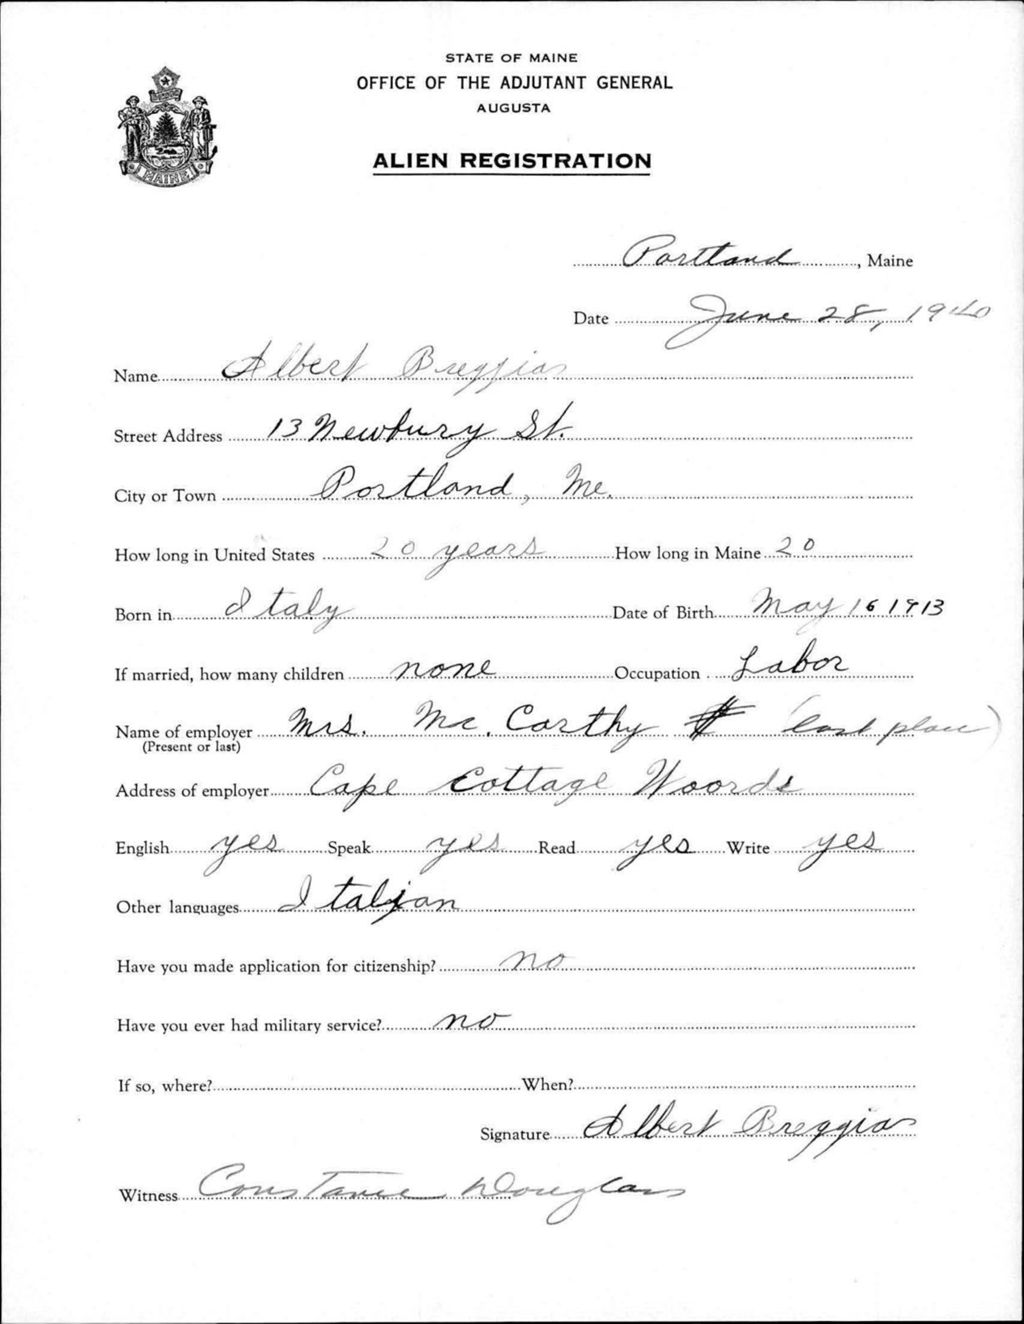 STATE OF MAINE
OFFICE OF THE ADJUTANT GENERAL
AUGUSTA
ALIEN REGISTRATION
MAINE
Portland, Maine
Date June 28, 1940
Name Albert Breggia
Street Address 13 Newbury St.
City or Town Portland, Me.
How long in United States 20 years How long in Maine 20
Born in Italy Date of Birth May 16 1913
If married, how many children none Occupation Labor
Name of employer Mrs. Mc. Carthy (last place)
(Present or last)
Address of employer Cape Cottage Woords
English yes Speak yes Read yes Write yes
Other languages Italian
Have you made application for citizenship? no
Have you ever had military service? no
If so, where? When?
Signature Albert Breggia
Witness Constance Douglass